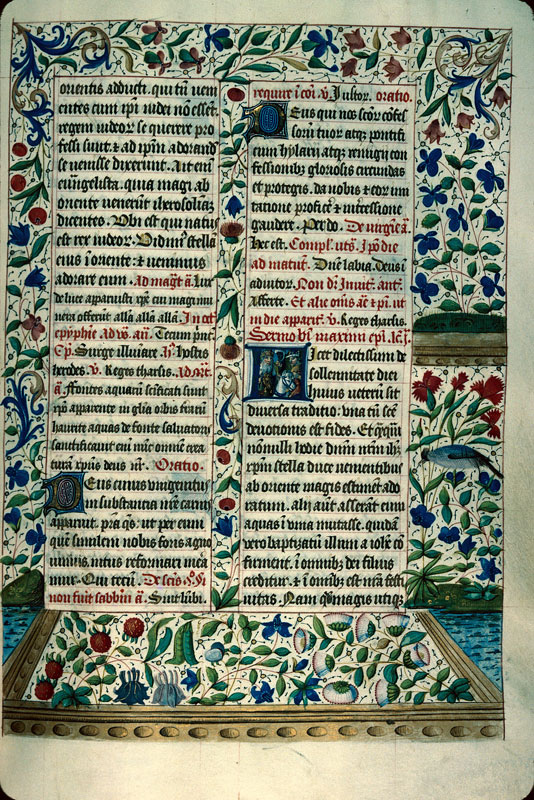 orientis adducti. qui tū ueni
entes cum ipī iudei nō essēt.
regem iudeoꝝ se querere pro
fessi sunt. ⁊ ad ipm̄ adorand
se uenisse dixerunt. Ait enī
euāgelista. quia magi ab
oriente uenerūt iherosolimā
dicentes. Ubi est qui natus
est rex iudeoꝝ. Uidimꝰ stellā
eius ī oriente: ⁊ uenimus
adorare eum. ad mag̃t a. Lux
de luce apparuisti xpē cui magi mu
nera offerūt alla alla alla. In oct
epyphīe ad vs. añ. Tecum prīc
Surge illuminare. hꝰ hostis
herodes. v. Reges tharsis. ad m̃t.
a. Fontes aquarū scificati sunt
xpō apparente in glīa orbis terrarū
haurite aquas de fonte saluatoris
santificauit enī nūc omnē crea
turā xpūs deus nr̄. Oratio.
Deus cuius unigenitus
in substantia nrē carnis
apparuit. pr̄a qs̄: ut per eum
quē similem nobis foris agno
uimus, intus reformari mea
mur. Qui tecū. De scīs
non fiūt sabbīn a. Sint lūbi.
require ī cōi v. Justor. oratio.
Deus qui nos scōꝝ cōfes
soꝝ tuoꝝ atqꝫ pontifi
cum hylarii atqꝫ remigii con
fessionibꝫ gloriosis circundas
et protegis. da nobis ⁊ eoꝝ imi
tatione proficeꝛ ⁊ intercessione
gaudere. Per dō. De virgīe a.
Hec est. Compl. uts̄. Ipō die
ad matut. Dn̄e labia. Deus ī
adiutoꝛ. Non dꝛ Inuit. ant̄.
Afferte. Et alie oīns añ ⁊ ps̄. ut
in die apparit. v. Reges tharsis.
Sermo bti maximi epī. lc̄. j.
Licet dilectissimi de
sollennitate diei
huius ueterū sit
diuersa traditio: una tn̄ scē
deuotionis est fides. Et q̄uis
nōnulli hodie dn̄m nrm̄ ihm̄
xpm̄ stella duce uenientibus
ab oriente magis estimēt ado
ratum. alii aūt asserāt eum
aquas ī uina mutasse. quidā
uero baptizatū illum a iohē cō
firment. ī omnibꝫ dei filius
creditur. ⁊ ī omnibꝫ est nrā festi
uitas. Nam q̄ magis utiqꝫ